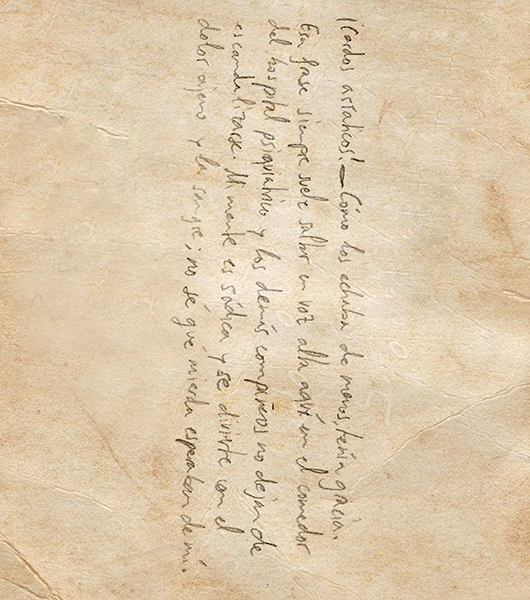 ¡Cerdos asiáticos! — Cómo los echaba de menos, tenía gracia.
Esa frase siempre suele saltar en voz alta aquí en el comedor
del hospital psiquiátrico y los demás compañeros no dejan de
escandalizarse. Mi mente es sádica y se divierte con el
dolor ajeno y la sangre; no sé qué mierda esperaban de mí.